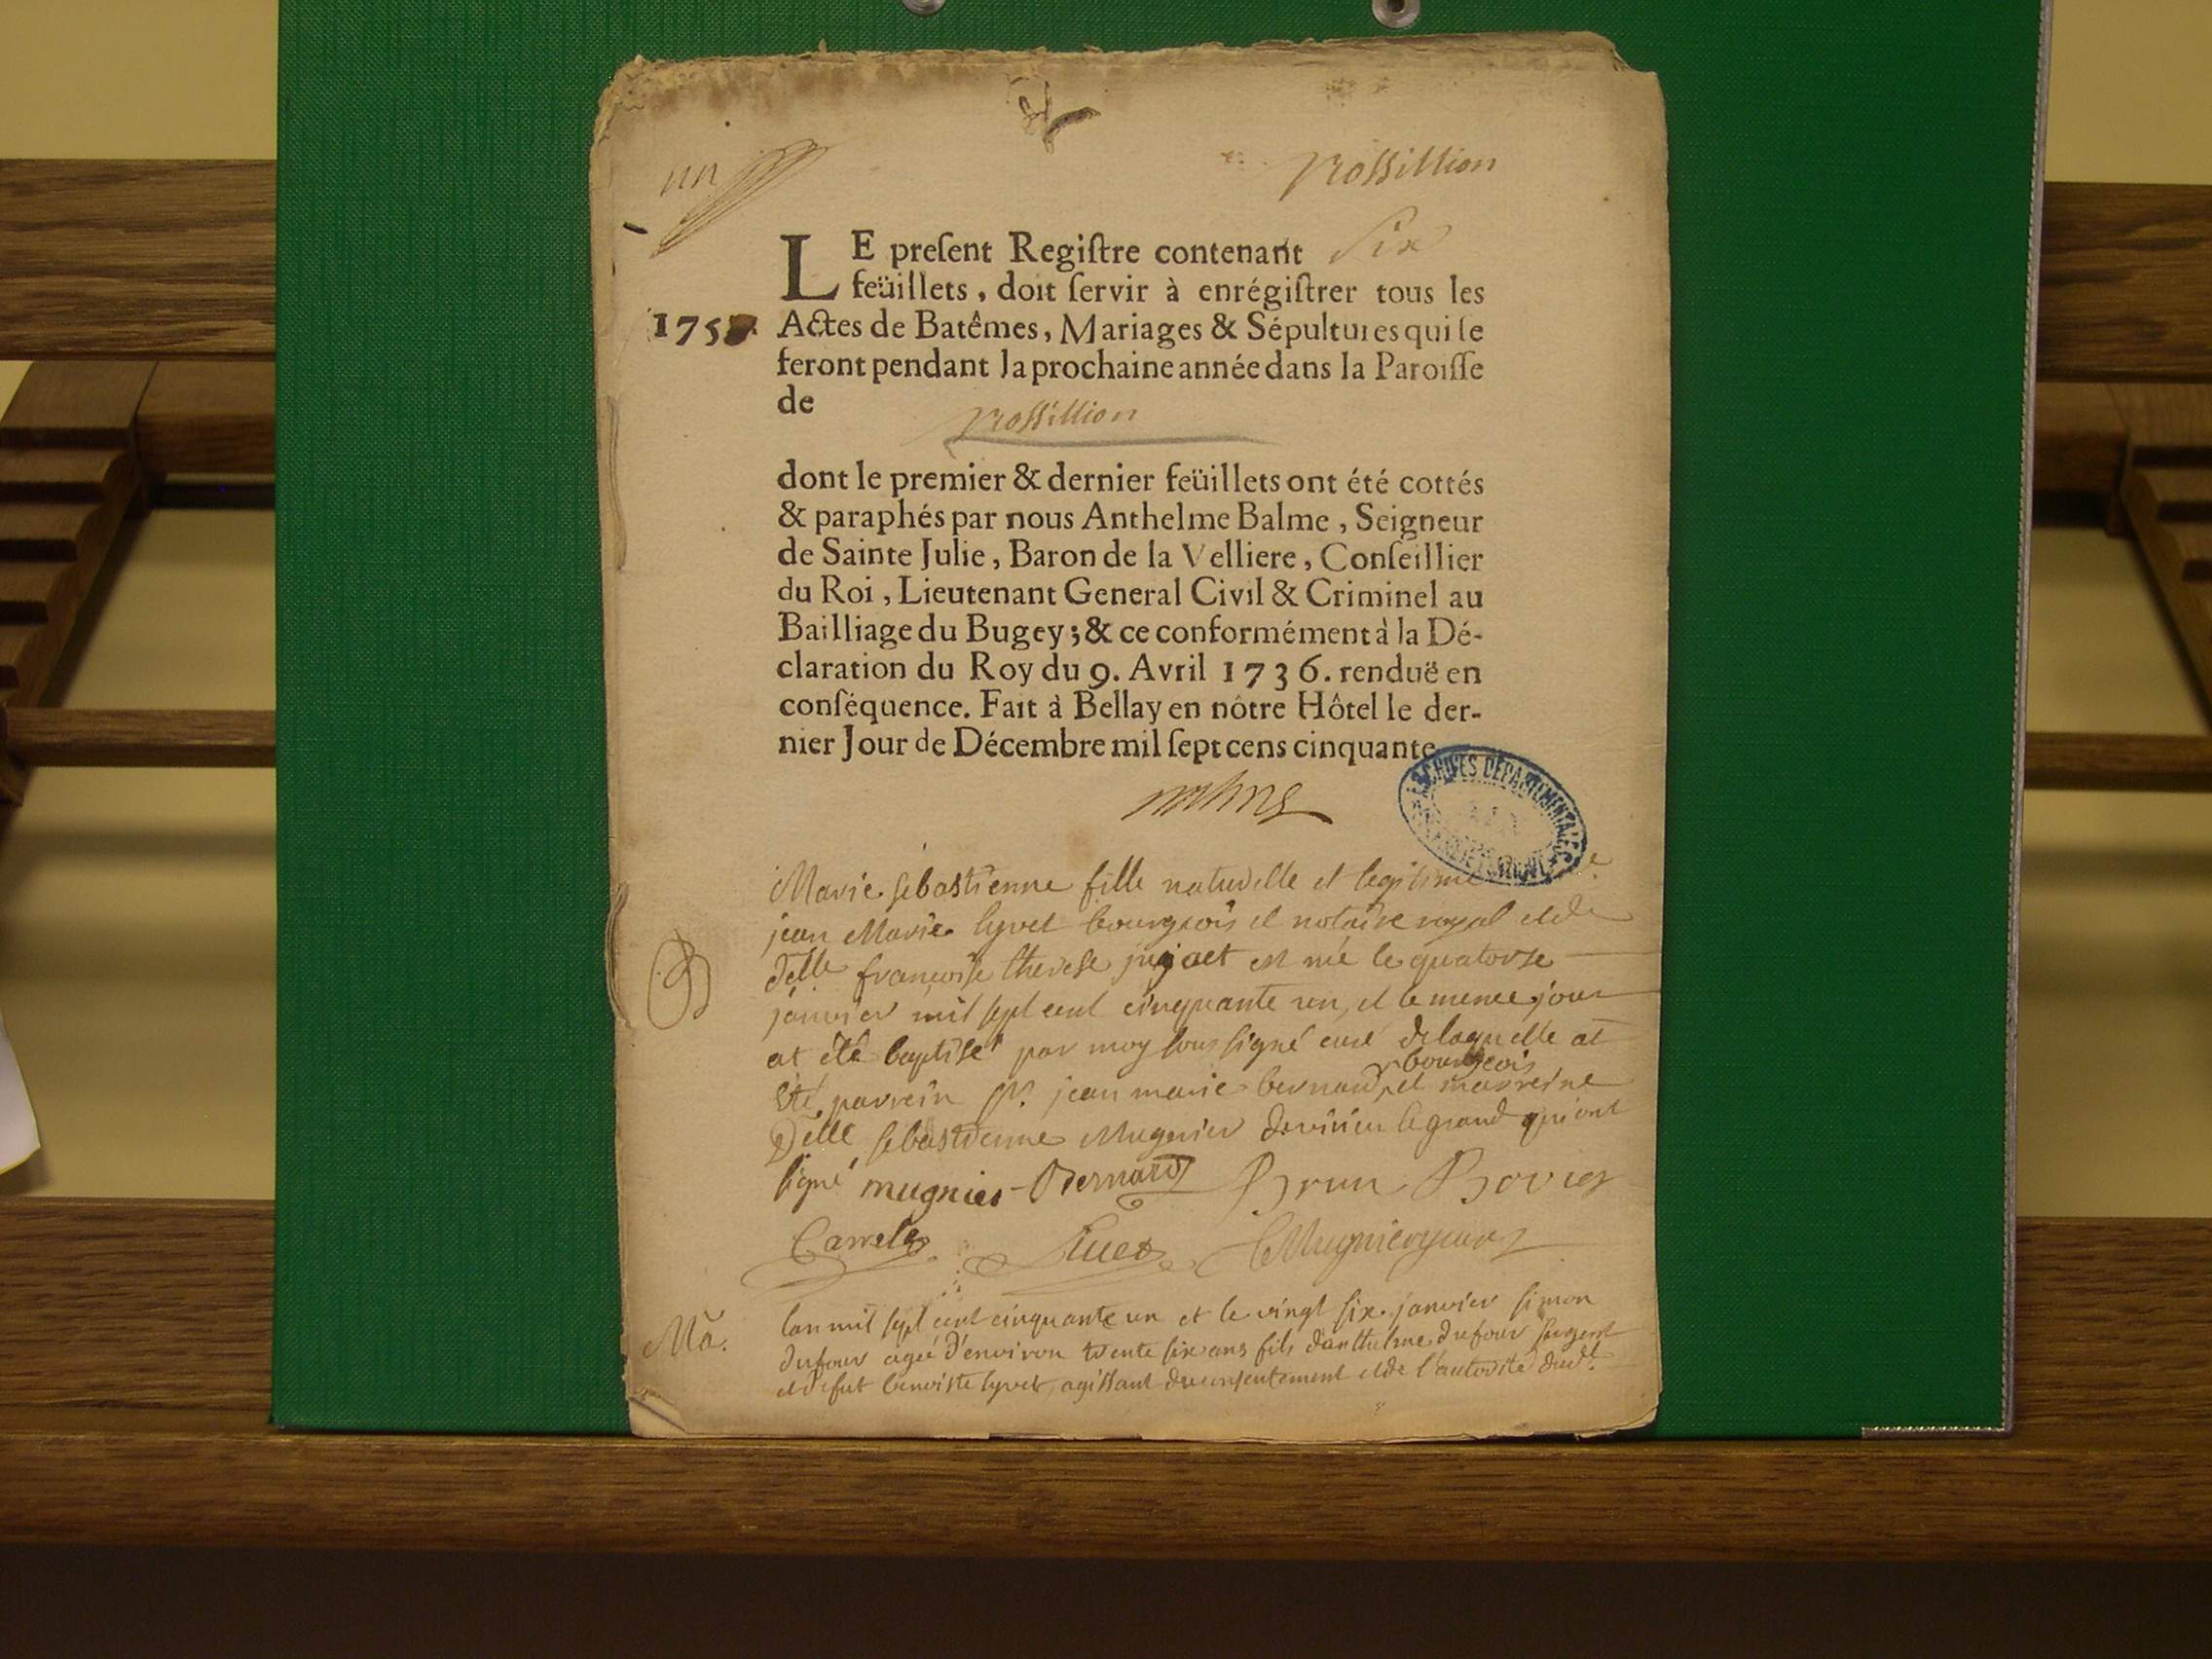 un
Rossillion
LE preſent Regiſtre contenant Six
feüillets, doit ſervir à enrégiſtrer tous les
175
Actes de Batêmes, Mariages & Sépultures qui ſe
feront pendant la prochaine année dans la Paroiſſe
de
Rossillion
dont le premier & dernier feüillets ont été cottés
& paraphés par nous Anthelme Balme, Seigneur
de Sainte Julie, Baron de la Velliere, Conſeillier
du Roi, Lieutenant General Civil & Criminel au
Bailliage du Bugey; & ce conformément à la Dé-
claration du Roy du 9. Avril 1736. renduë en
conſéquence. Fait à Bellay en nôtre Hôtel le der-
nier Jour de Décembre mil ſept cens cinquante
ARCHIVES DÉPARTEMENTALES
Marie sebastienne fille naturelle et legitime
jean Marie lyvet bourgeois et notaire royal et de
delle francoise therese jujaet est né le quatorze
janvier mil sept cent cinquante un, et le meme jour
at été baptisé par moy sous signé curé de laquelle at
bourgeois
été parrein Sr. jean marie bernard, et marreine
Delle sebastienne Mugnier de virieu le grand qui ont
signé mugnier Bernard Brun Bovier
Carrel
Ma.
lan mil sept cent cinquante un et le vingt six janvier simon
dufour agé d'environ trente six ans fils d'anthelme dufour sergent
et de fut benoiste lyvet, agissant du consentement et de l'autorité dudt.